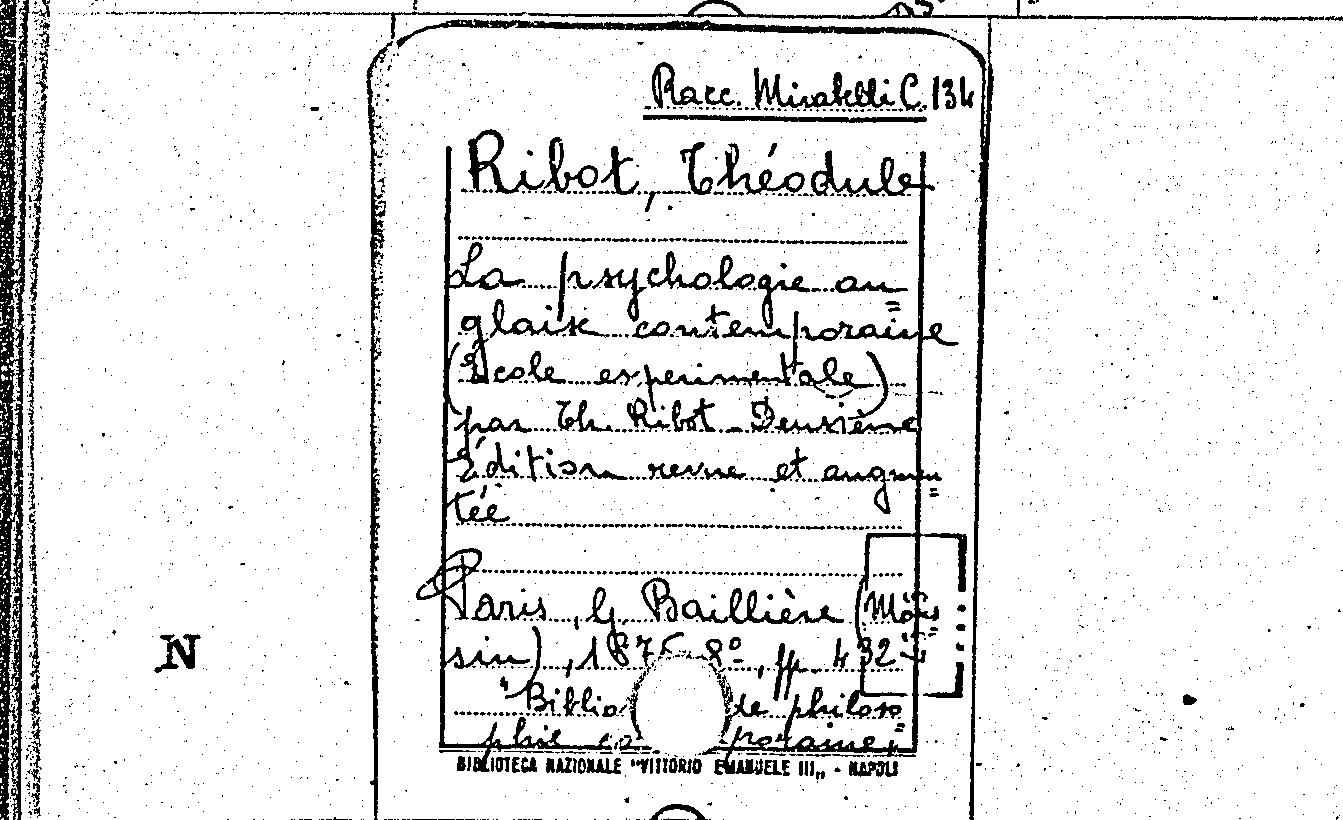 Racc. Mirabelli C. 134
Ribot, Théodule
La psychologie an=
glaise contemporaine
(École experimentale)
par Th. Ribot - Deuxième
Édition revue et augmen=
tée
Paris, G. Baillière
sin), 187 8º, pp. 432
"Biblio de philoso=
phie co poraine"
BIBLIOTECA NAZIONALE "VITTORIO EMANUELE III„ - NAPOLI
N